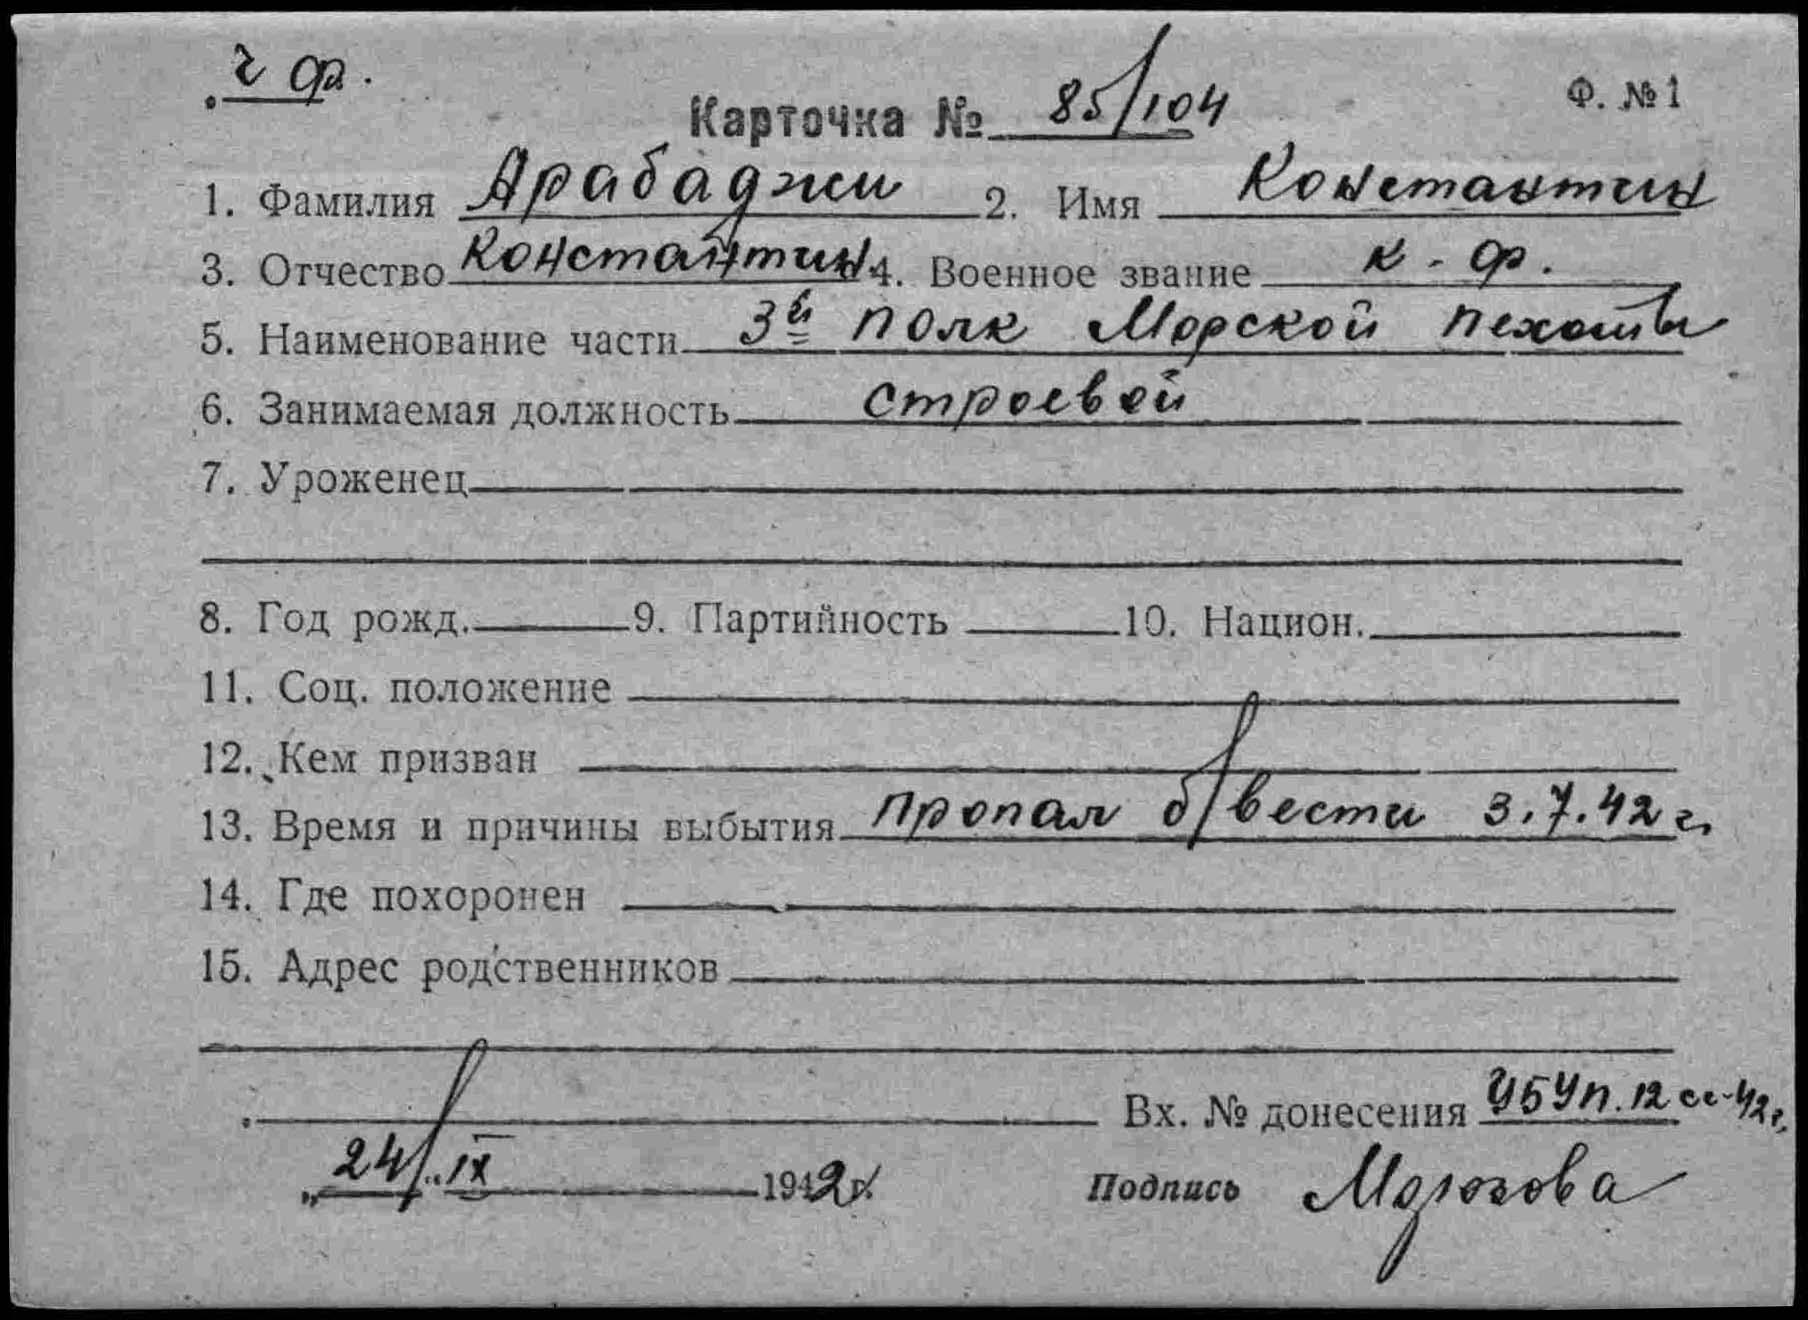 ч ф.
Ф. №1
Карточка № 85/104
1. Фамилия Арабаджи 2. Имя Константин
3. Отчество Константин. 4. Военное звание к-ф.
5. Наименование части 3й полк Морской пехоты
6. Занимаемая должность строевой
7. Уроженец
8. Год рожд. 9. Партийность 10. Национ.
11. Соц. положение
12. Кем призван
13. Время и причины выбытия пропал б/вести 3.7.42 г.
14. Где похоронен
15. Адрес родственников
Вх. № донесения УБУп. 12 сс-42 г.
„24/" IX 1942 г.
Подпись Морозова